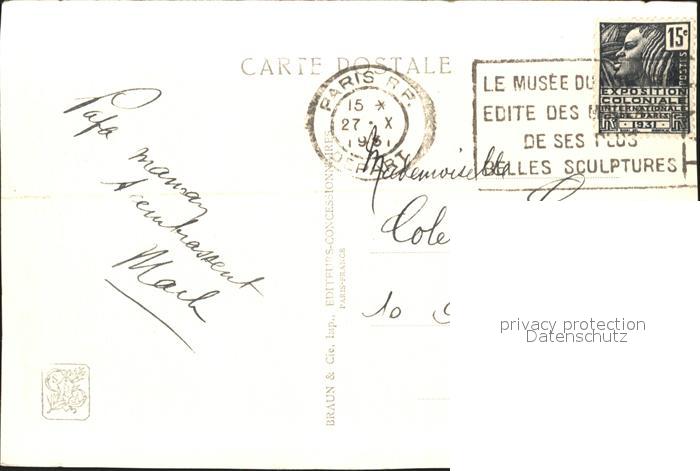 CARTE POSTALE
Papa maman
t'embrassent
PARIS R.P.
15 *
27 · X
1931
LE MUSÉE DU
EDITE DES
DE SES PLUS
BELLES SCULPTURES
15c
POSTES
EXPOSITION
COLONIALE
INTERNATIONALE
DE PARIS
1931
Mademoiselle
10
BRAUN & Cie, Imp., EDITEURS-CONCESSIONNAIRES
PARIS-FRANCE
privacy protection
Datenschutz